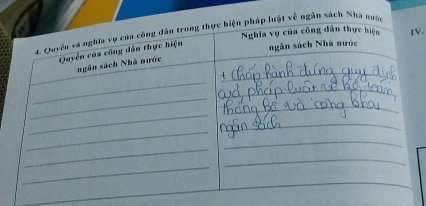 4. Quyền và nghĩa vụ của công dân trong thực hiện pháp luật về ngân sách Nhà nước
Quyền của công dân thực hiện
ngân sách Nhà nước
Nghĩa vụ của công dân thực hiện
ngân sách Nhà nước
+ chấp hành đúng quy định
của pháp luật về kế toán,
thống kê và công khai
ngân sách
IV.